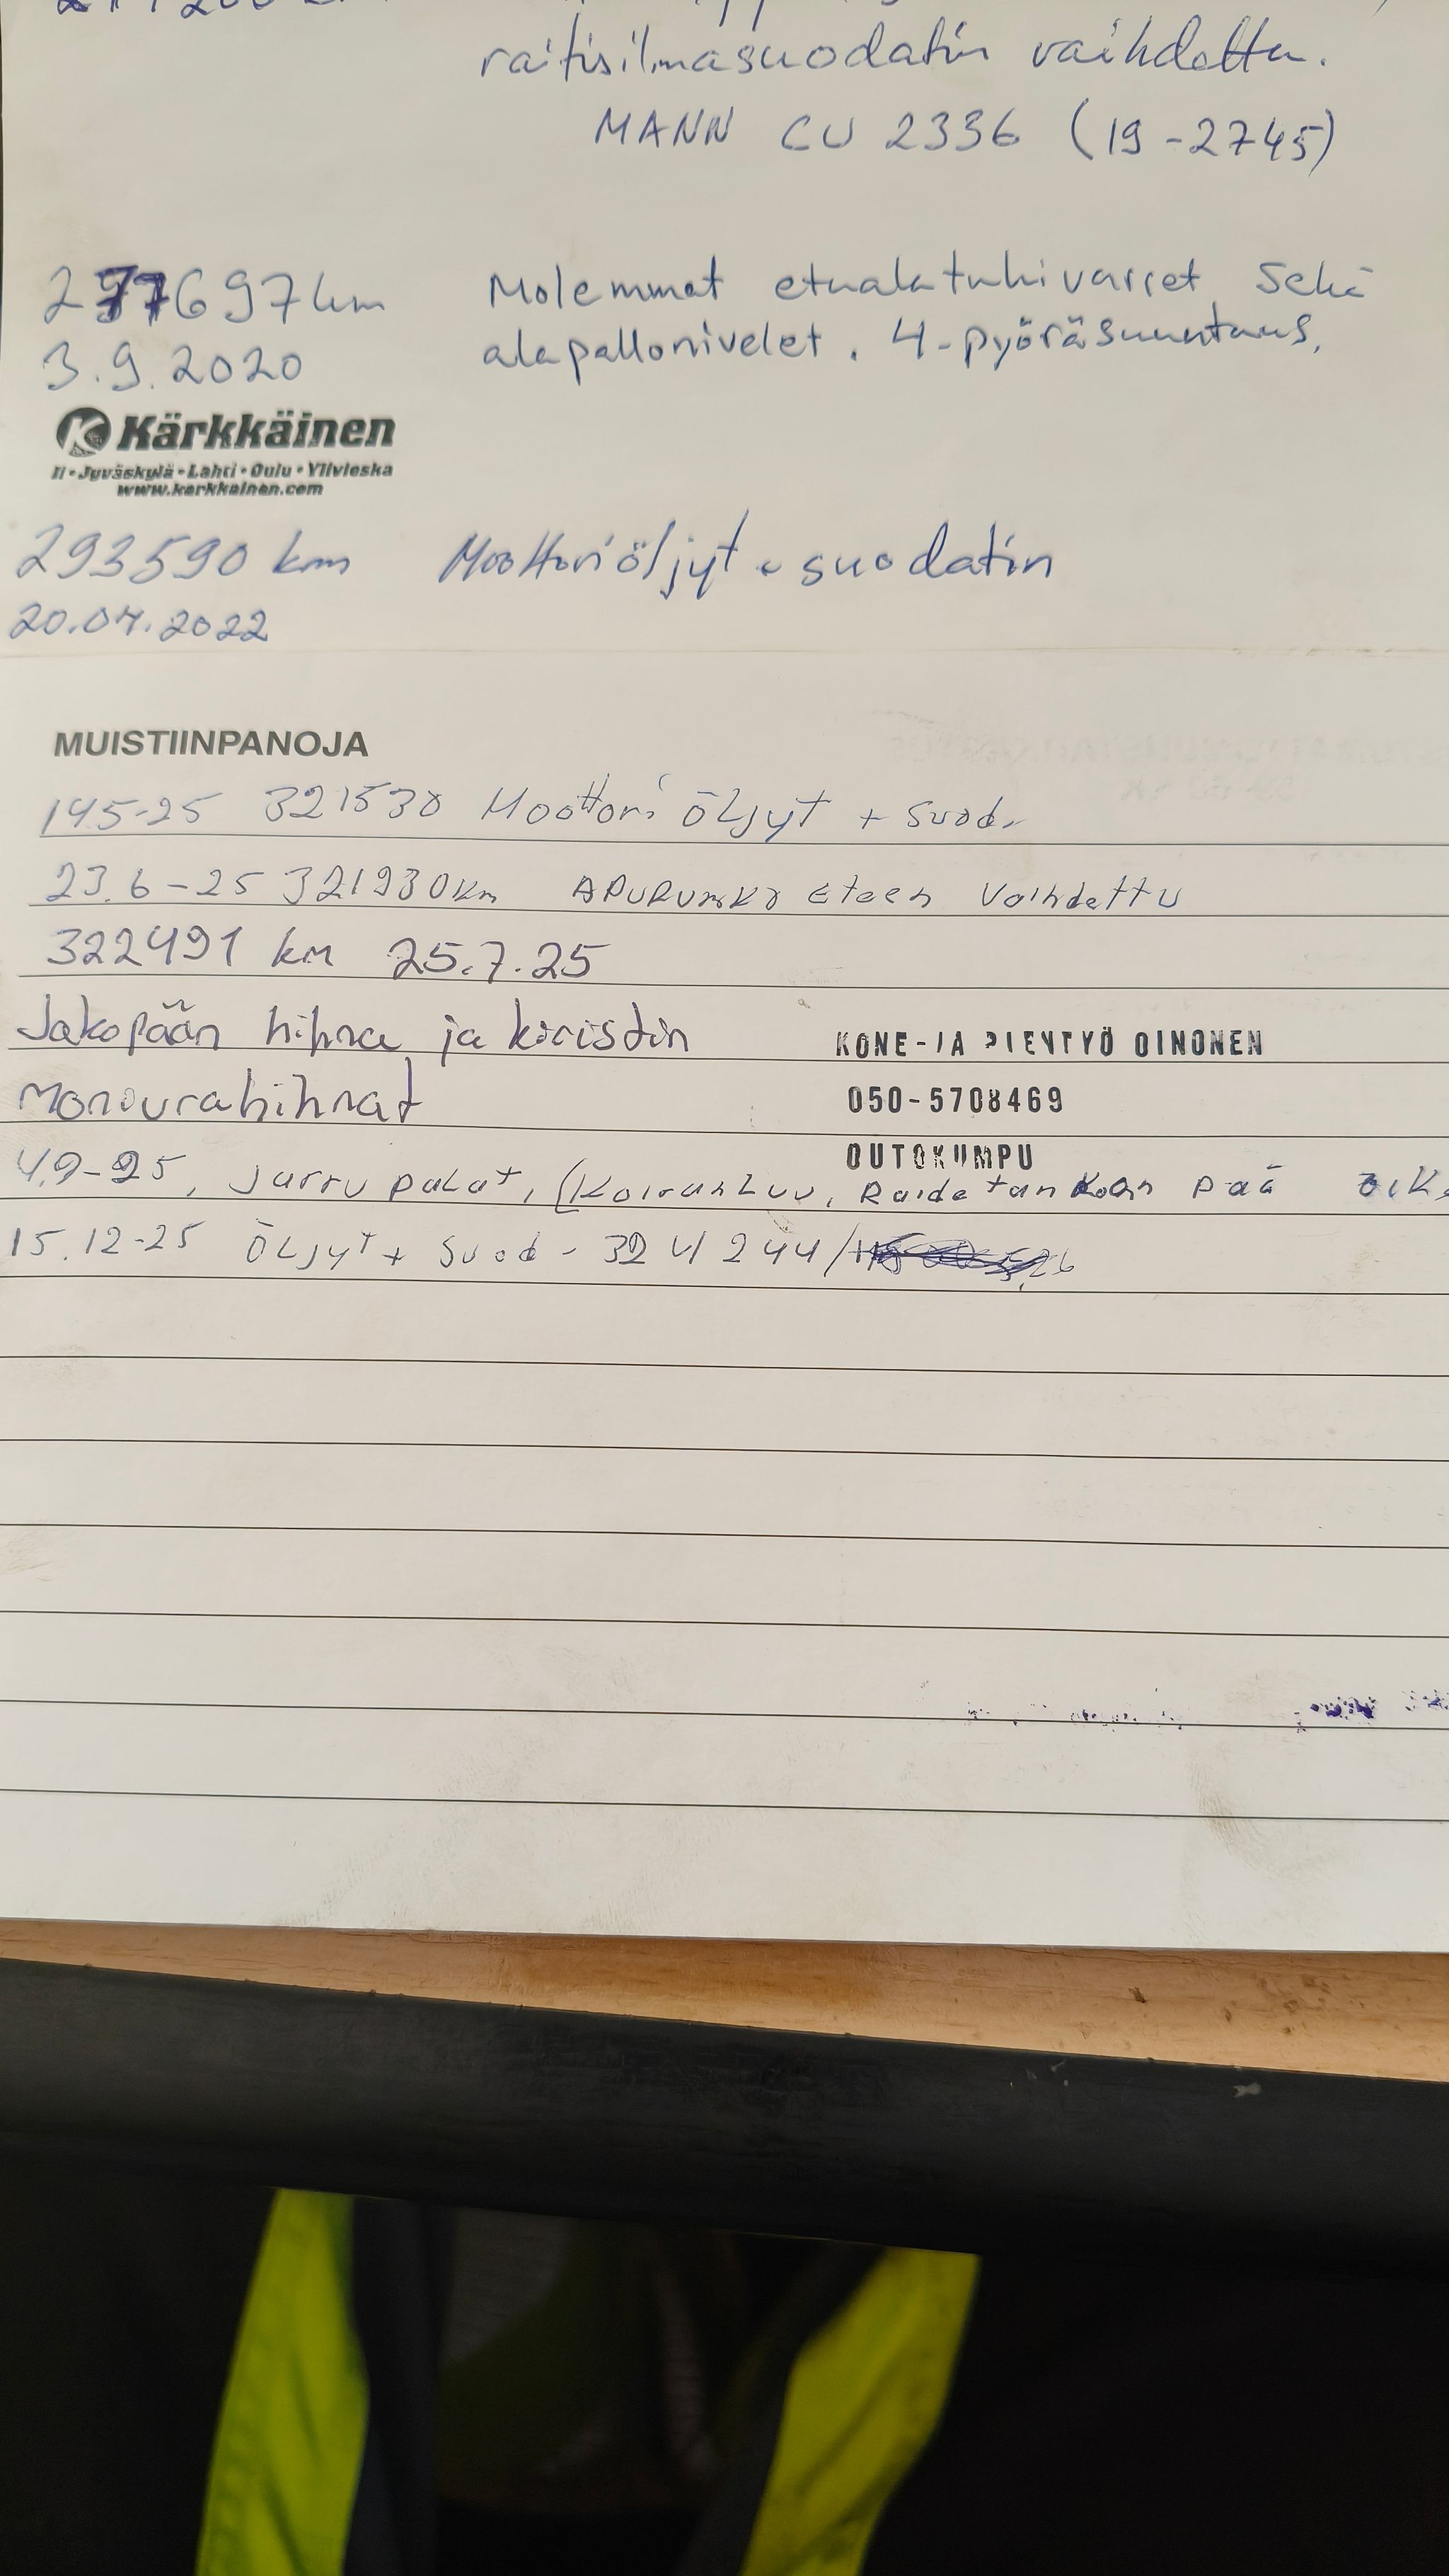 raitisilmasuodatin vaihdettu.
MANN CU 2336 (19-2745)
277697 km Molemmat etualatukivarret, sekä
3.9.2020 alapallonivelet. 4-pyöräsuuntaus.
Kärkkäinen
Ii • Jyväskylä • Lahti • Oulu • Ylivieska
www.karkkainen.com
293590 km Moottoriöljyt + suodatin
20.04.2022
MUISTIINPANOJA
14.5-25 321530 Moottori öljyt + suod.
23.6-25 321930km APURUNKO Eteen Vaihdettu
322491 km 25.7.25
Jakopään hihna ja kiristin
KONE-JA PIENTYÖ OINONEN
Moniurahihnat
050-5708469
OUTOKUMPU
4.9-25, Jarru palat, (Koiranluu, Raidetankoon pää oik
15.12-25 Öljyt + suod - 324244/